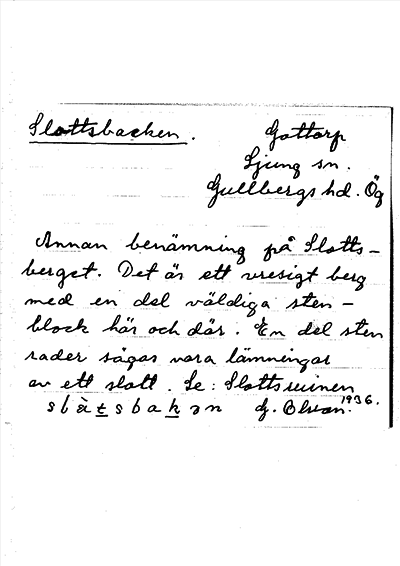 Slottsbacken. Gottorp
Ljung sn.
Gullbergs hd. Ög
Annan benämning på Slotts-
berget. Det är ett vresigt berg
med en del väldiga sten-
block här och där. En del sten
rader sägas vara lämningar
av ett slott. Se: Slottsruinen
sbàtsbakən G. Olsson. 1936.